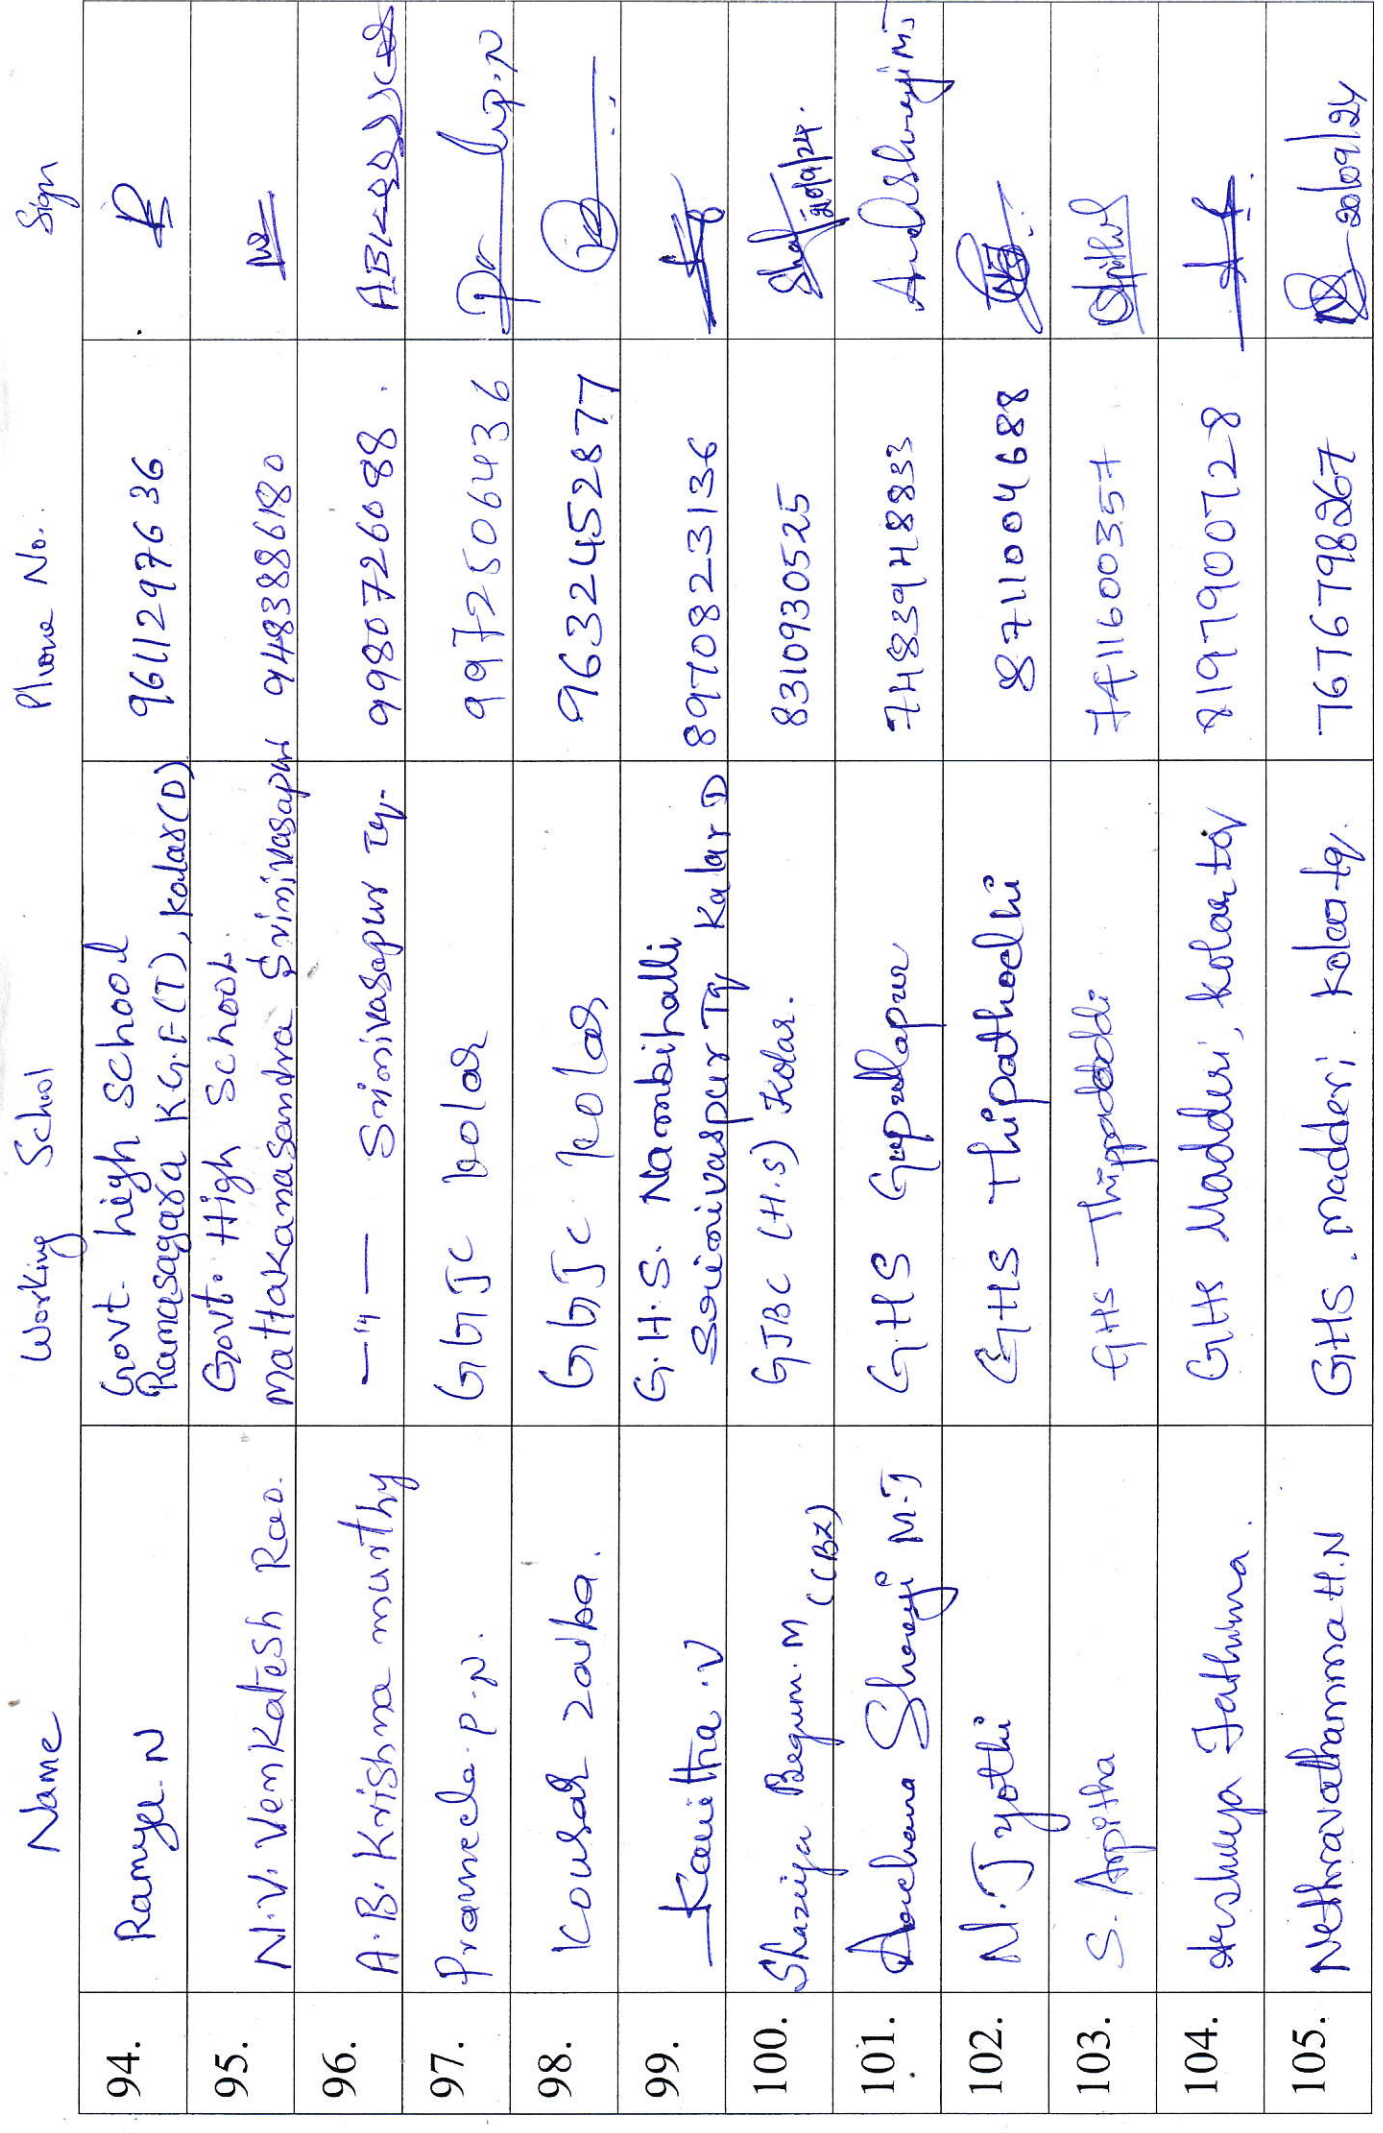 Name Working School Phone No. Sign
94. Ramya N Govt. high School 9611297636
Ramasagara K.G.F(T), Kolar(D)
95. N.V. Venkatesh Rao. Govt. High School 9483886180
Mattakanasandra Srinivasapur
96. A.B. Krishna murthy —"— Srinivasapur Tq. 9980726088.
97. Prameela. P.N. GGJC Kolar 9972506436
98. Kousar Zaiba. GGJC Kolar 9632452877
99. Kavitha.V G.H.S. Nambihalli 8970823136
Srinivaspur Tq Kolar D
100. Shaziya Begum.M (CBZ) GJBC (H.S) Kolar. 8310930525 20/9/24.
101. Archana Shreeji M.J GHS 7483948833
102. N. Jyothi GHS 8711004688
103. S. Arpitha GHS 7411600357
104. Arshiya Fathima. GHS Madderi, Kolar tq 8197900728
105. Nethravathamma H.N GHS. Madderi, Kolar tq. 7676798267 20/09/24